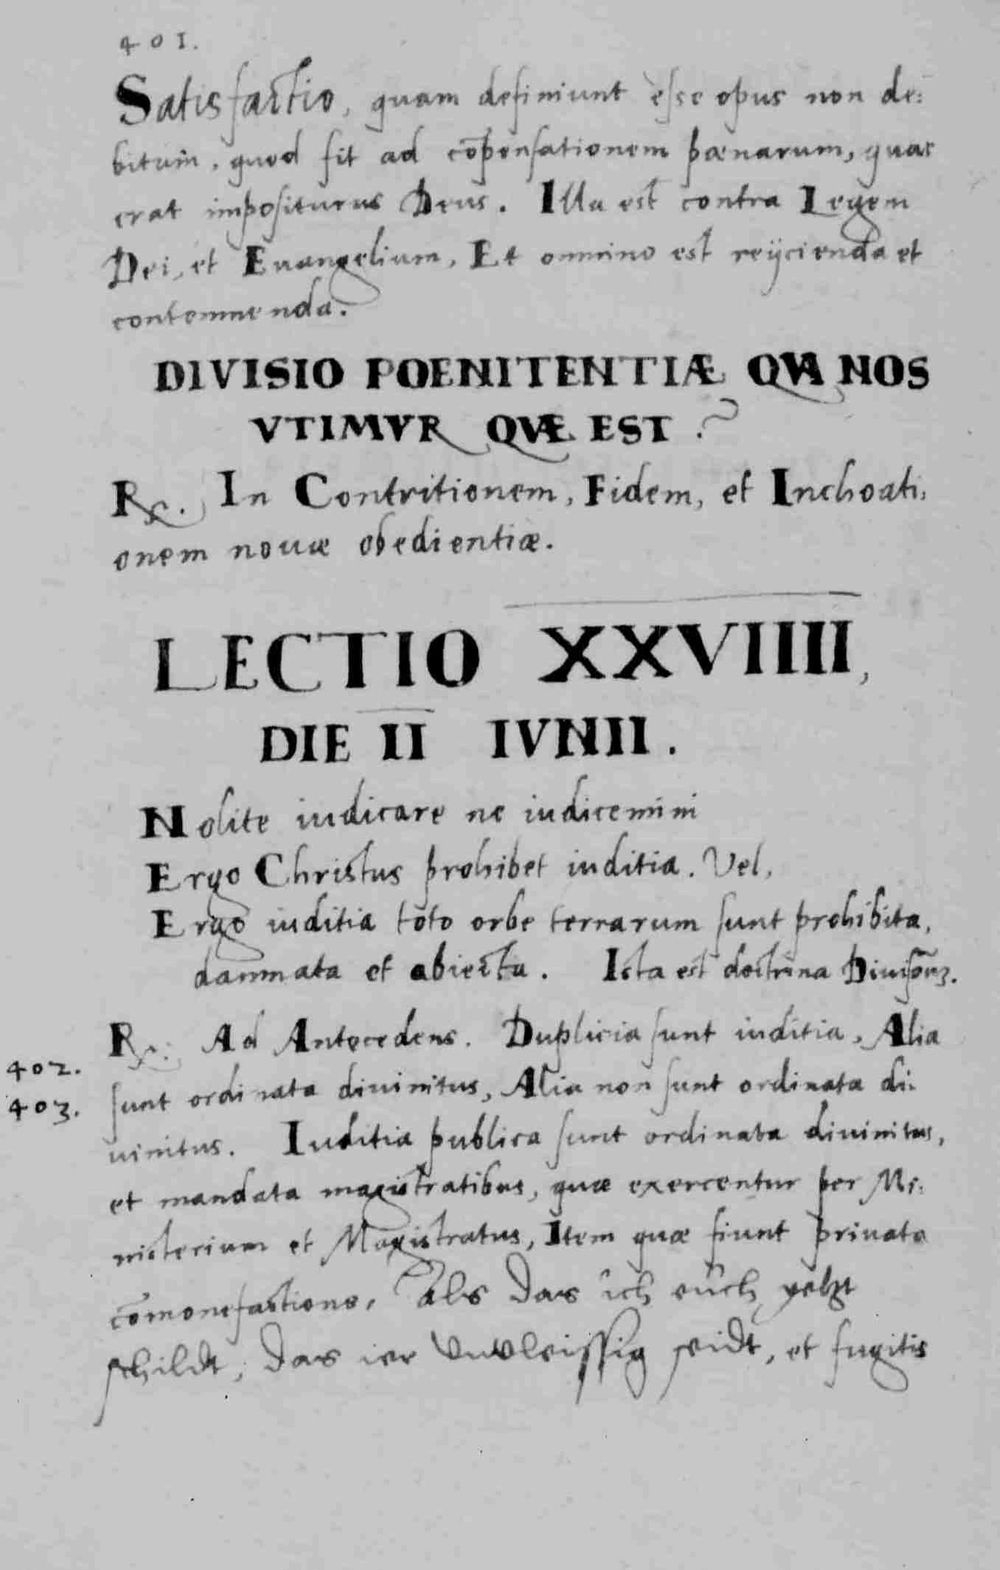 401.
Satisfactio, quam definiunt esse opus non de:
bitum, quod fit ad cōpensationem pœnarum, quas
erat impositurus Deus. Illa est contra Legem
Dei, et Euangelium, Et omnino est reijcienda et
contemnenda.
DIVISIO POENITENTIÆ QVA NOS
VTIMVR QVÆ EST ?
R. In Contritionem, Fidem, et Inchoati:
onem nouæ obedientiæ.
LECTIO XXVIIII,
DIE II IVNII.
Nolite iudicare ne iudicemini
Ergo Christus prohibet iuditia. Vel,
Ergo iuditia toto orbe terrarum sunt prohibita,
damnata et abiecta. Ista est doctrina
R. Ad Antecedens. Duplicia sunt iuditia, Alia
402. sunt ordinata diuinitus, Alia non sunt ordinata di:
403. uinitus. Iuditia publica sunt ordinata diuinitus,
et mandata magistratibus, quæ exercentur per Mi:
nisterium et Magistratus, Item quæ fiunt priuata
cōmonefactione, Als das ich euch yetzt
schildt, das ier vnvleissig seidt, et fugitis